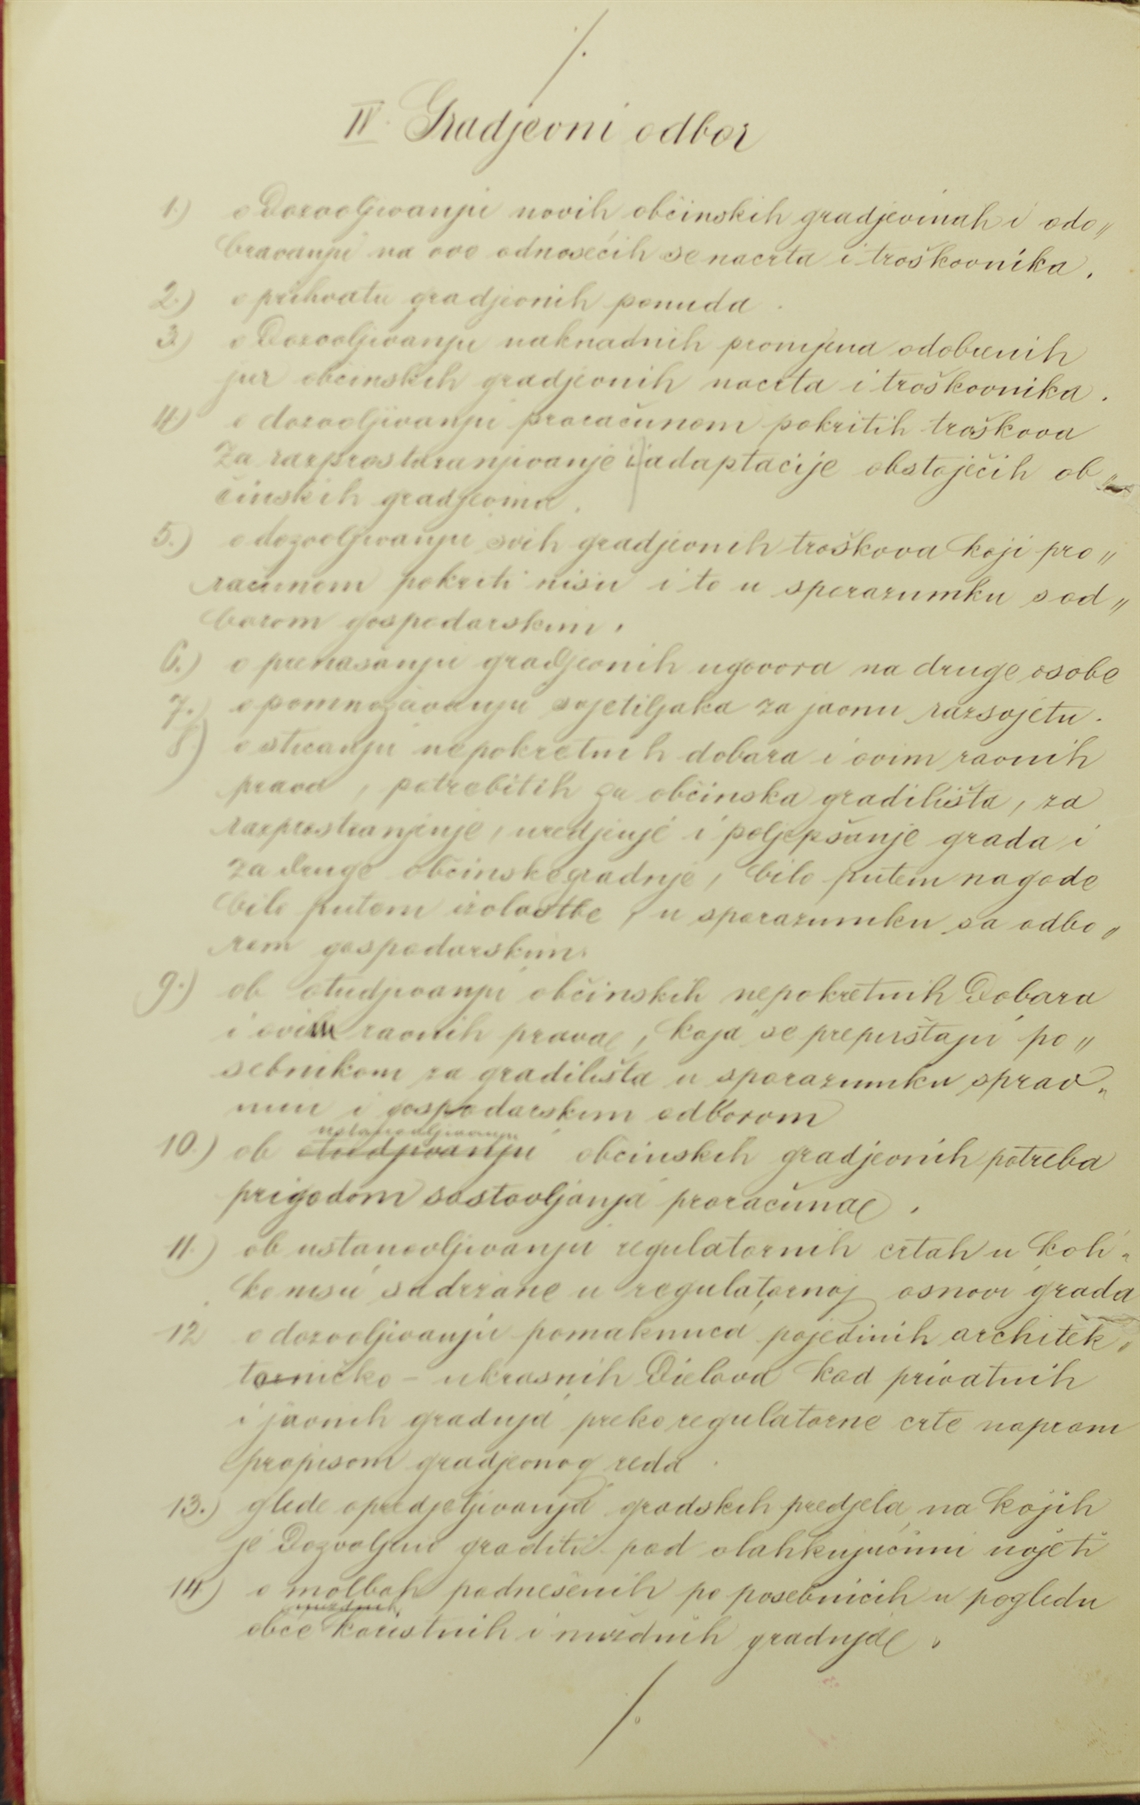 ./.
IV. Gradjevni odbor
1.) o dozvoljivanju novih občinskih gradjevinah i odo„
bravanju na ove odnosećih se nacrta i troškovnika.
2.) o prihvatu gradjevnih ponuda.
3.) o dozvoljivanju naknadnih promjena odobrenih
jur občinskih gradjevnih nacrta i troškovnika.
4.) o dozvoljivanju proračunom pokritih troškova
za razprostaranjivanje i adaptacije obstojećih ob„
činskih gradjevina.
5.) o dozvoljivanju svih gradjevnih troškova koji pro„
računom pokriti nisu i to u sporazumku s od„
borom gospodarskim.
6.) o prenašanju gradjevnih ugovora na druge osobe
7.) o pomnožavanju svjetiljaka za javnu razsvjetu.
8.) o sticanju nepokretnih dobara i ovim ravnih
prava, potrebitih za občinska gradilišta, za
razprostranjenje, uredjenje i poljepšanje grada i
za druge občinske gradnje, bilo putem nagode
bilo putem izvlastbe, u sporazumku sa odbo„
rom gospodarskim.
9.) ob otudjivanju občinskih nepokretnih dobara
i ovim ravnih prava, koja se prepuštaju po„
sebnikom za gradilišta u sporazumku s prav„
nim i gospodarskim odborom
ustanovljivanju
10.) ob otudjivanju občinskih gradjevnih potreba
prigodom sastavljanja proračuna.
11.) ob ustanovljivanju regulatornih crtah u koli„
ko nisu sadržane u regulatornoj osnovi grada
12 o dozvoljivanju pomaknuća pojedinih architek„
torničko - ukrasnih dielova kod privatnih
i javnih gradnja preko regulatorne crte napram
propisom gradjevnog reda.
13.) glede opredjeljivanja gradskih predjela, na kojih
je dozvoljeno graditi pod olahkujućimi uvjeti
14.) o molbah podnešenih po posebnicih u pogledu
obće koristnih i nuždnih gradnja.
./.